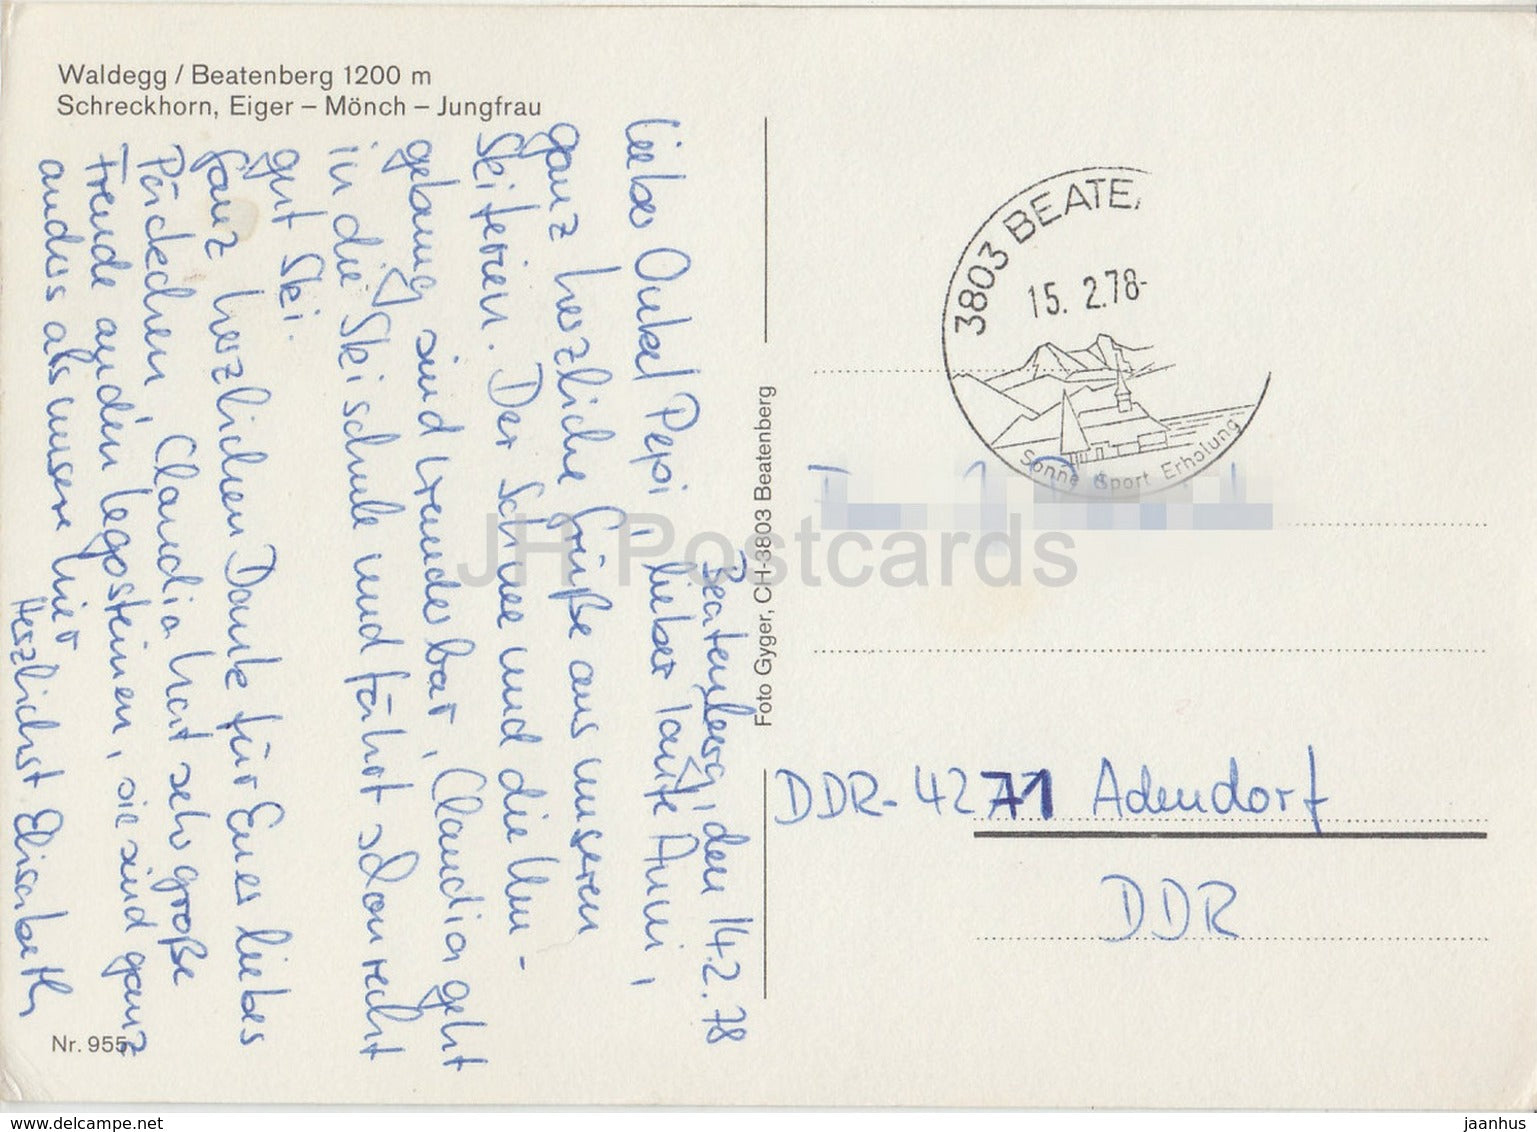 Waldegg / Beatenberg 1200 m
Schreckhorn, Eiger – Mönch – Jungfrau
Beatenberg, den 14.2.78
Lieber Onkel Pepi, liebe Tante Anni,
ganz herzliche Grüße aus unseren
Skiferien. Der Schnee und die Um-
gebung sind wunderbar, Claudia geht
in die Skischule und fährt schon recht
gut Ski.
Ganz herzlichen Dank für Euer liebes
Päckchen, Claudia hat sehr große
Freude an den Legosteinen, sie sind ganz
anders als unsere hier
Herzlichst Elisabeth
Nr. 955
Foto Gyger, CH-3803 Beatenberg
3803 BEATE
15. 2.78-
Sonne Sport Erholung
DDR-4271 Adendorf
DDR
JH Postcards
www.delcampe.net
jaanhus